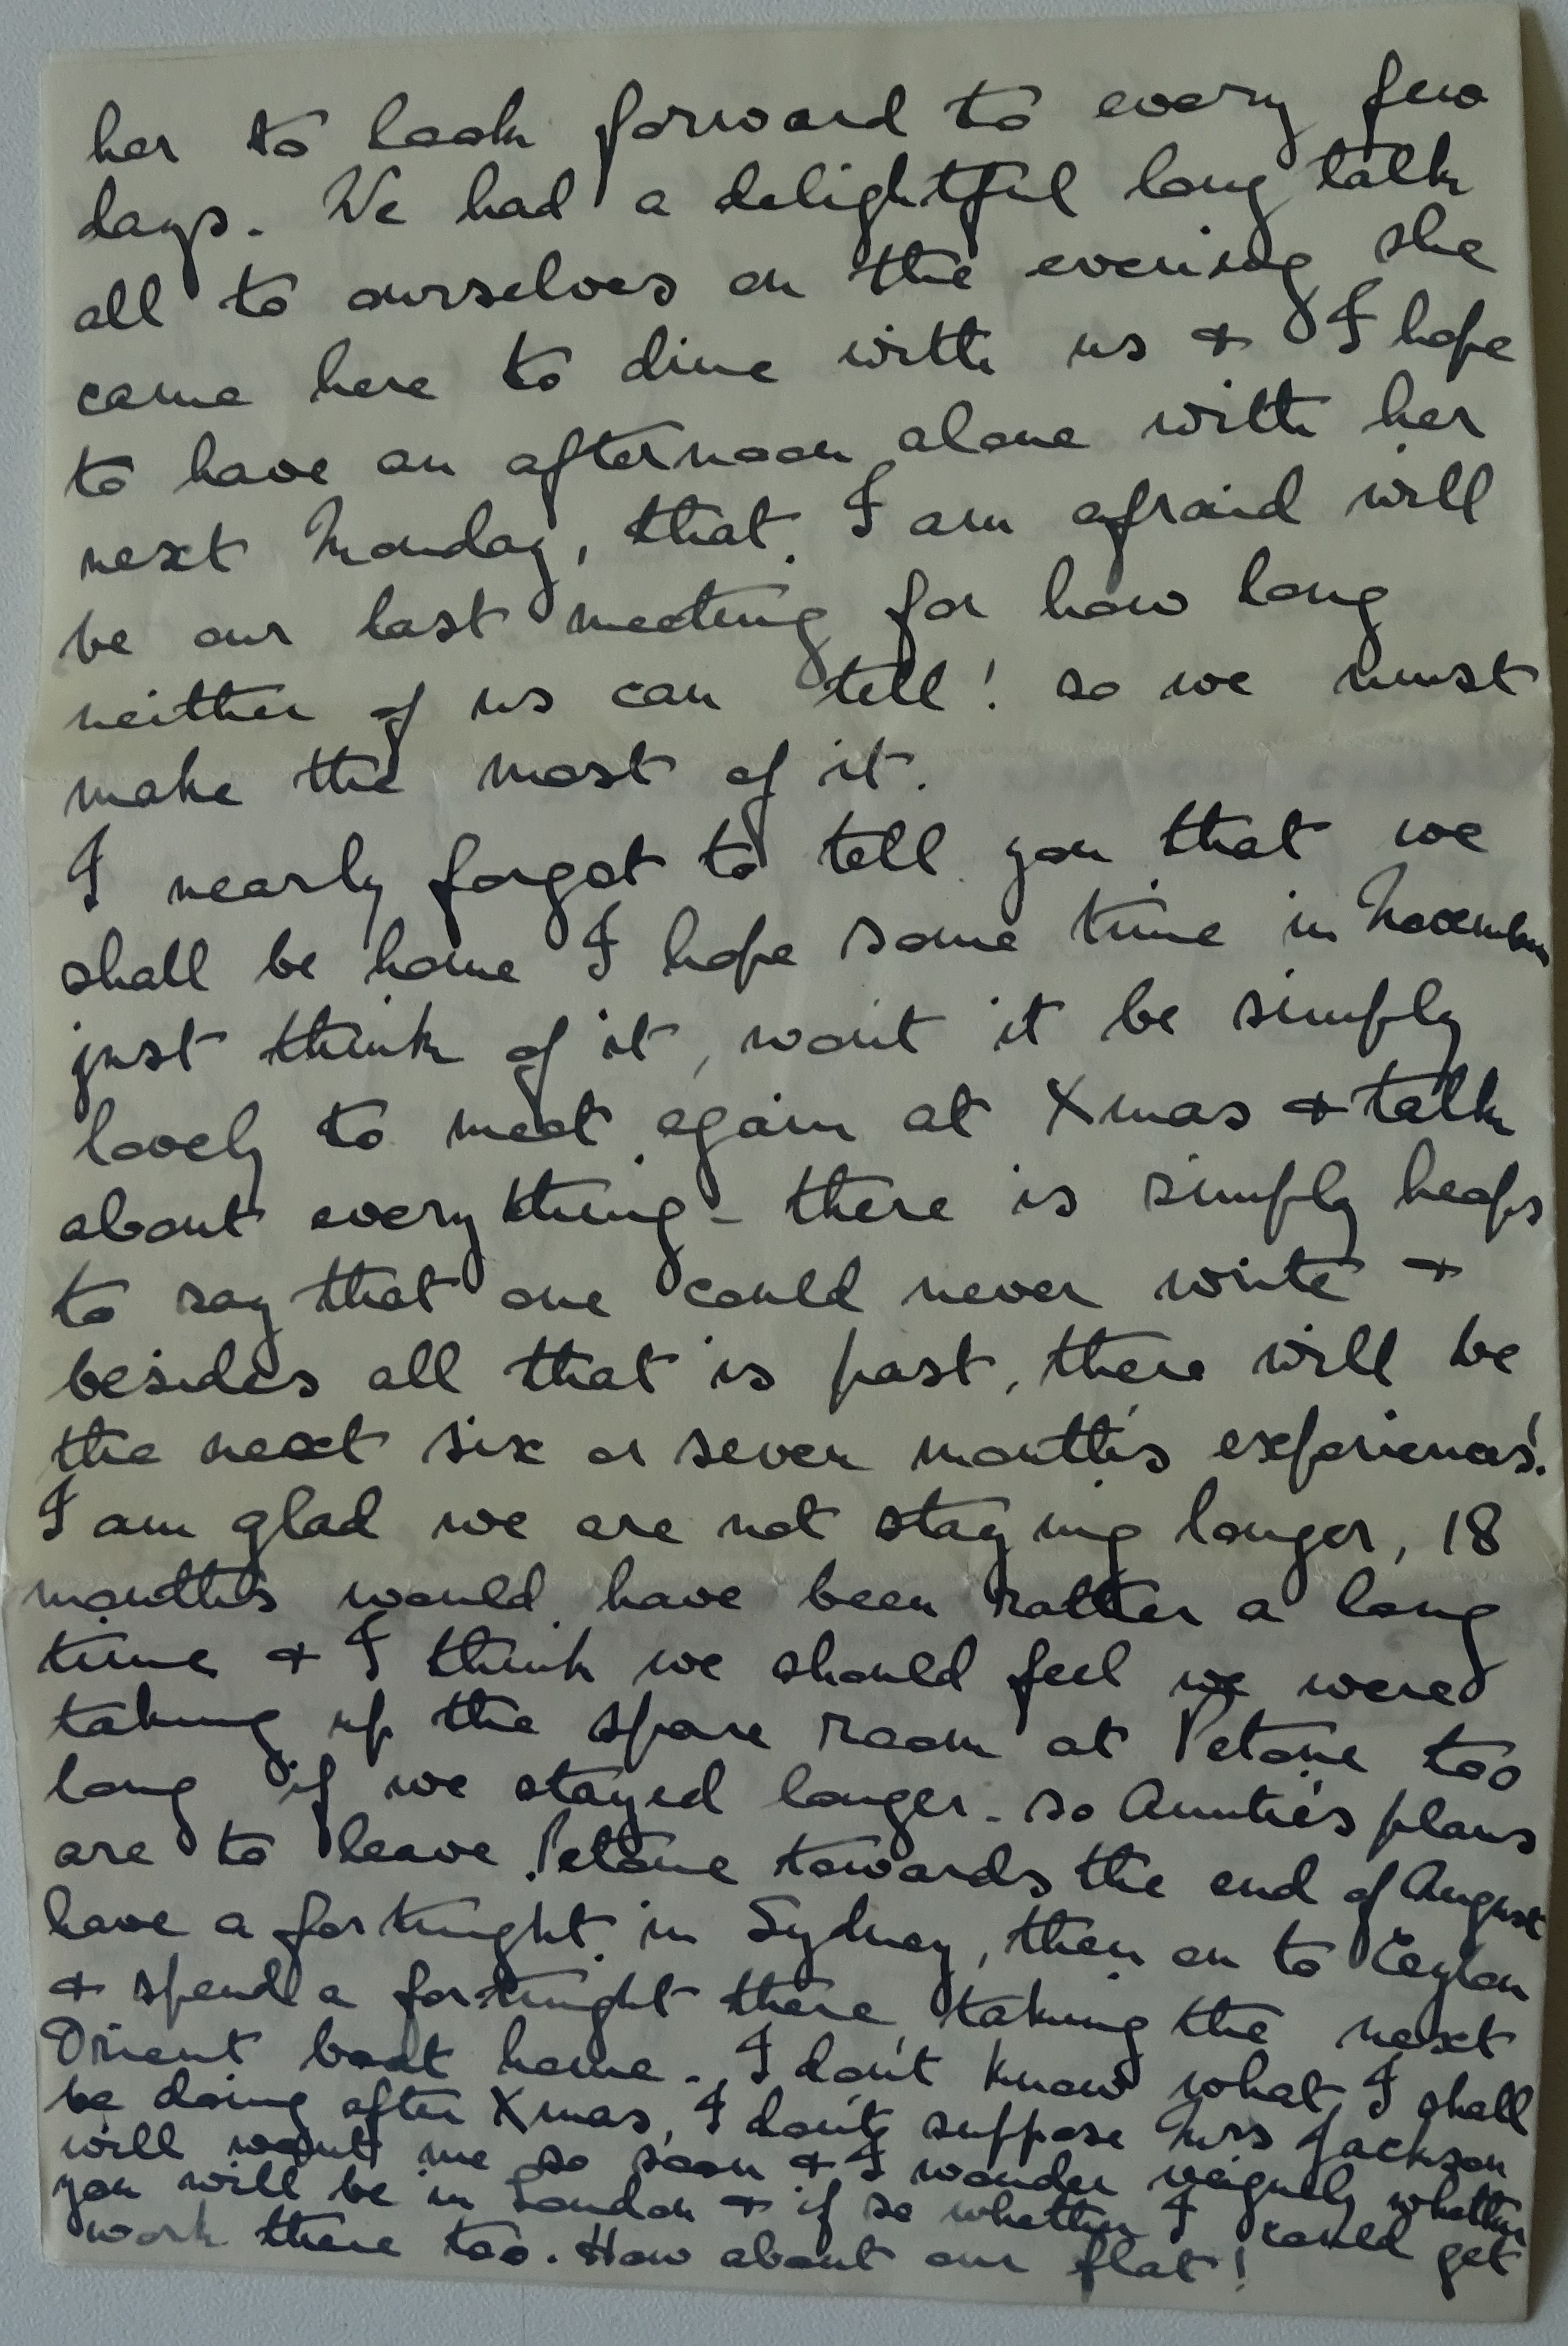 her to look forward to every few
days. We had a delightful long talk
all to ourselves on the evening she
came here to dine with us & I hope
to have an afternoon alone with her
next Monday, that I am afraid will
be our last meeting for how long
neither of us can tell! so we must
make the most of it.
I nearly forgot to tell you that we
shall be home I hope some time in November
just think of it, won't it be simply
lovely to meet again at Xmas & talk
about everything - there is simply heaps
to say that one could never write &
besides all that is past, there will be
the next six or seven month's experiences!
I am glad we are not staying longer, 18
months would have been rather a long
time & I think we should feel we were
taking up the spare room at Petone too
long if we stayed longer - so Auntie's plans
are to leave Petone towards the end of August
have a fortnight in Sydney, then on to Ceylon
& spend a fortnight there, taking the next
Orient boat home. I don't know what I shall
be doing after Xmas, I don't suppose Mrs Jackson
will want me so soon & I wonder vaguely whether
you will be in London & if so whether I could get
work there too. How about our flat!